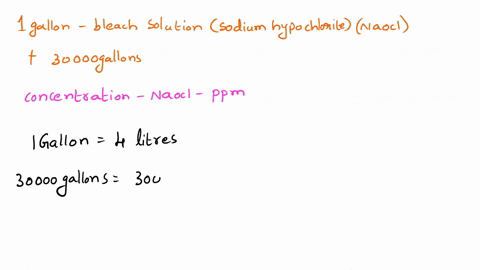 1 gallon - bleach solution (sodium hypochlorite) (Naocl)
+ 30000gallons
concentration - Naocl - ppm
1Gallon = 4 litres
30000gallons = 300